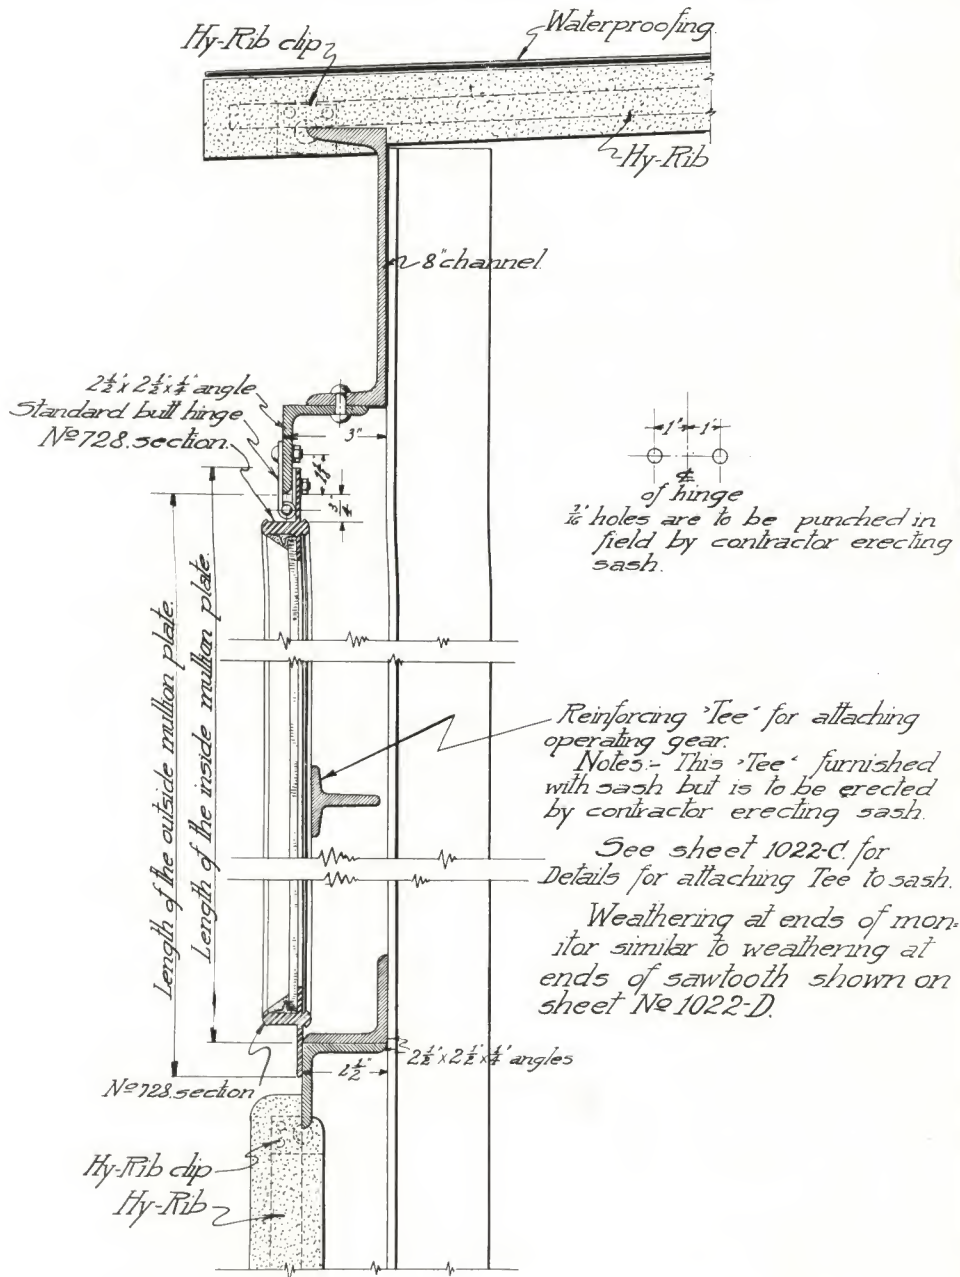 Waterproofing
Hy-Rib clip
Hy-Rib
8" channel.
2½" x 2½" x ¼" angle
Standard butt hinge
No 728. section
3"
1"
1"
℄
of hinge
holes are to be punched in
field by contractor erecting
sash.
¾"
Length of the outside mullion plate.
Length of the inside mullion plate.
Reinforcing 'Tee' for attaching
operating gear.
Notes:- This 'Tee' furnished
with sash but is to be erected
by contractor erecting sash.
See sheet 1022-C. for
Details for attaching Tee to sash.
Weathering at ends of mon-
itor similar to weathering at
ends of sawtooth shown on
sheet No 1022-D.
2½" x 2½" x ¼" angles
2½"
No 728. section
Hy-Rib clip
Hy-Rib